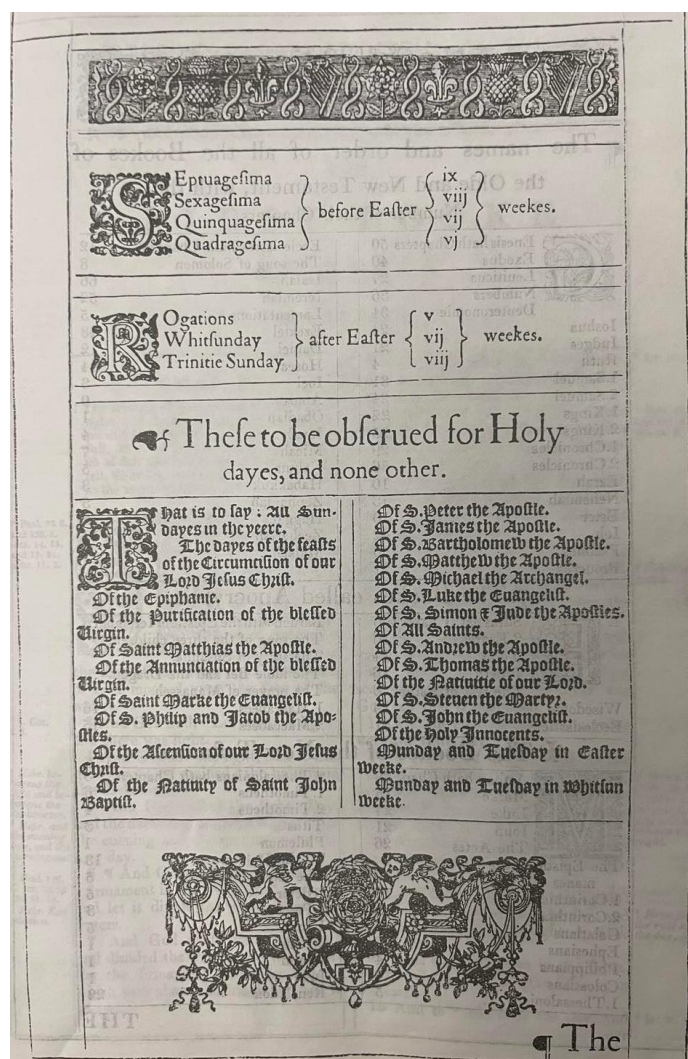 Septuagesima
Sexagesima
Quinquagesima
Quadragesima
before Easter
ix
viij
vij
vj
weekes.
ROgations
Whitsunday
Trinitie Sunday
after Easter
v
vij
viij
weekes.
These to be obserued for Holy
dayes, and none other.
THat is to say: All Sun-
dayes in the yeere.
The dayes of the feasts
of the Circumcision of our
Lord Jesus Christ.
Of the Epiphanie.
Of the Purification of the blessed
Uirgin.
Of Saint Matthias the Apostle.
Of the Annunciation of the blessed
Uirgin.
Of Saint Marke the Euangelist.
Of S. Philip and Jacob the Apo-
stles.
Of the Ascension of our Lord Jesus
Christ.
Of the Natiuity of Saint John
Baptist.
Of S. Peter the Apostle.
Of S. James the Apostle.
Of S. Bartholomew the Apostle.
Of S. Matthew the Apostle.
Of S. Michael the Archangel.
Of S. Luke the Euangelist.
Of S. Simon & Jude the Apostles.
Of All Saints.
Of S. Andrew the Apostle.
Of S. Thomas the Apostle.
Of the Natiuitie of our Lord.
Of S. Steuen the Martyr.
Of S. John the Euangelist.
Of the Holy Innocents.
Munday and Tuesday in Easter
weeke.
Munday and Tuesday in Whitsun
weeke.
¶ The